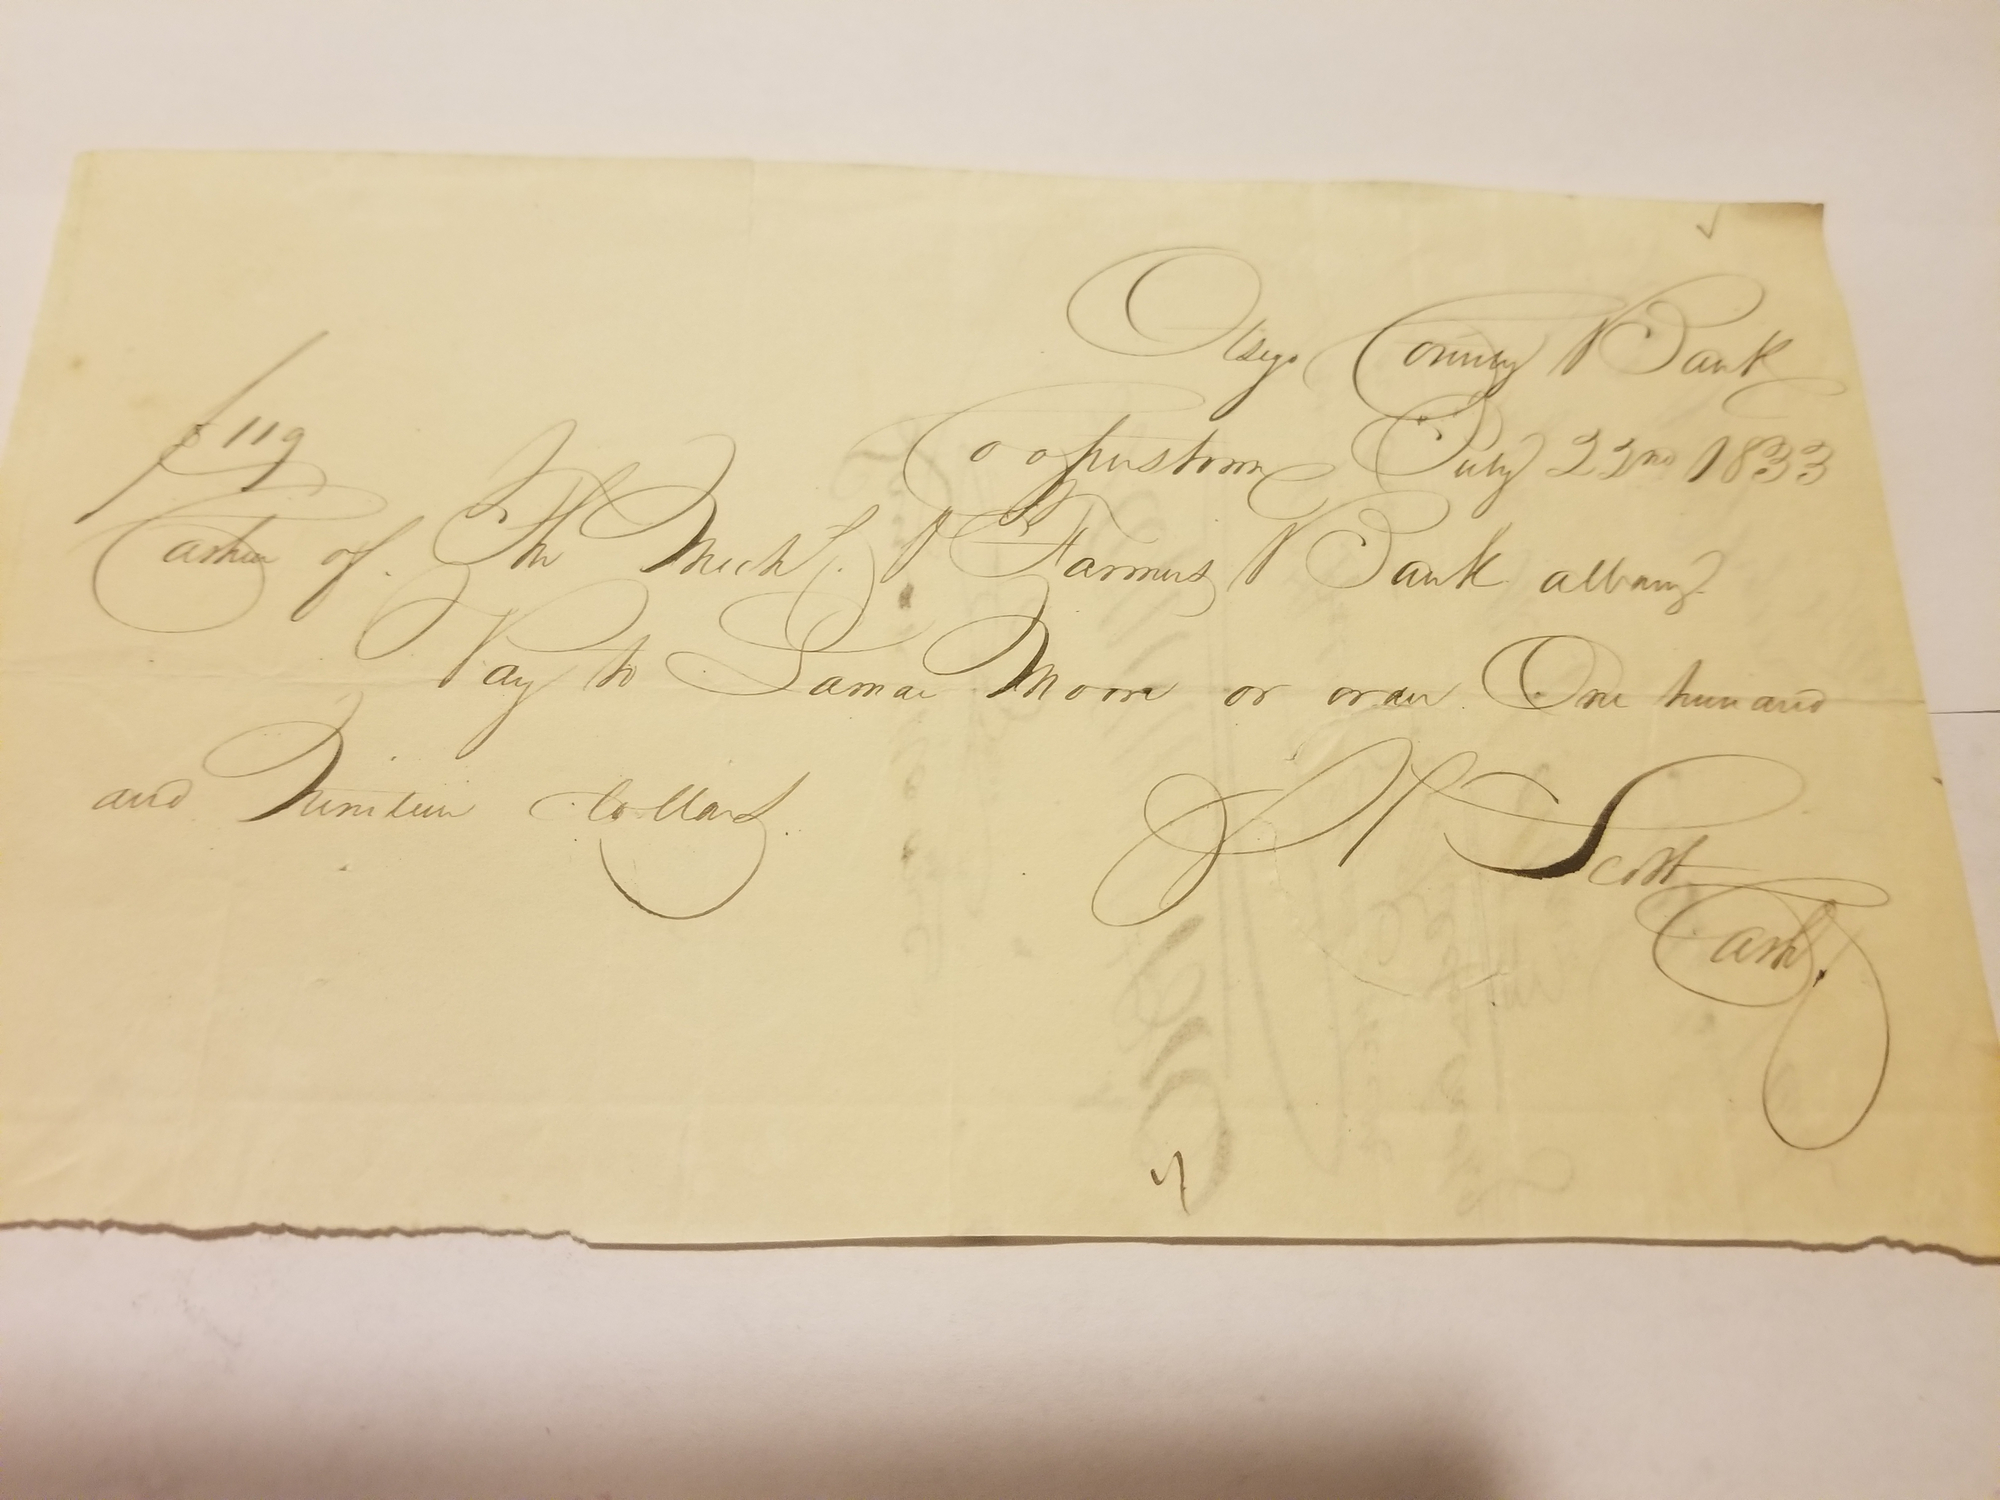 Otsego County Bank
Cooperstown July 22nd 1833
$119
Cashier of the Mech.s & Farmers Bank albany
Pay to Moore or order One hundred
and Nineteen dollars
H Scott
Cash.